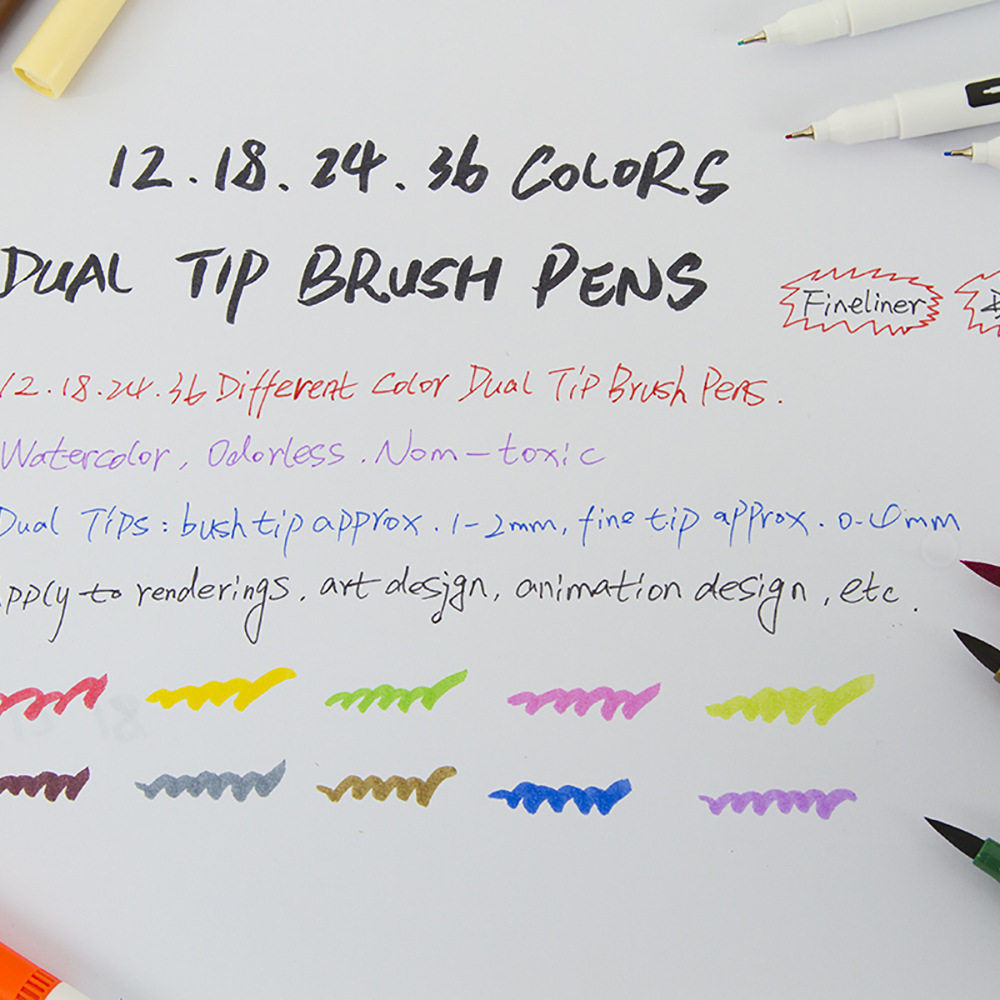 12.18.24.36 COLORS
DUAL TIP BRUSH PENS
Fineliner
12.18.24.36 Different Color Dual Tip Brush Pens.
Watercolor, Odorless. Nom-toxic
Dual Tips: bush tip approx. 1-2mm, fine tip approx. 0.4mm
apply to renderings, art desjgn, animation design, etc.